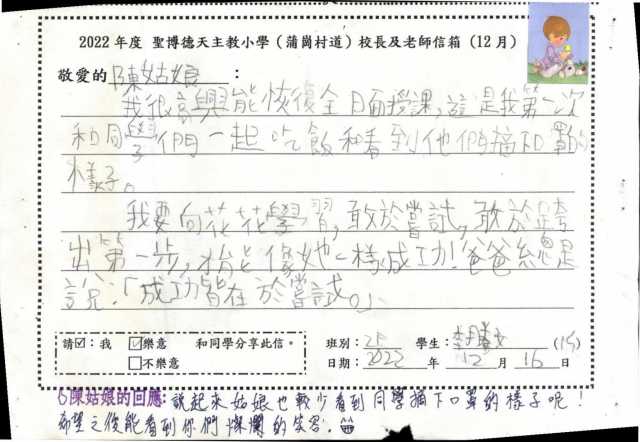 2022 年度 聖博德天主教小學（蒲崗村道）校長及老師信箱（12月）
敬愛的 陳姑娘 ：
我很高興能恢復全日面授課,這是我第一次
和同學們一起吃飯和看到他們摘下口罩的
樣子。
我要向花花學習,敢於嘗試,敢於跨
出第一步,才能像她一樣成功!爸爸總是
說:「成功皆在於嘗試。」
請☑：我 ☑樂意 和同學分享此信。 班別： 2F 學生： 李 (15)
□不樂意 日期： 2022 年 12 月 16 日
陳姑娘的回應: 說起來姑娘也較少看到同學摘下口罩的樣子呢!
希望之後能看到你們燦爛的笑容.